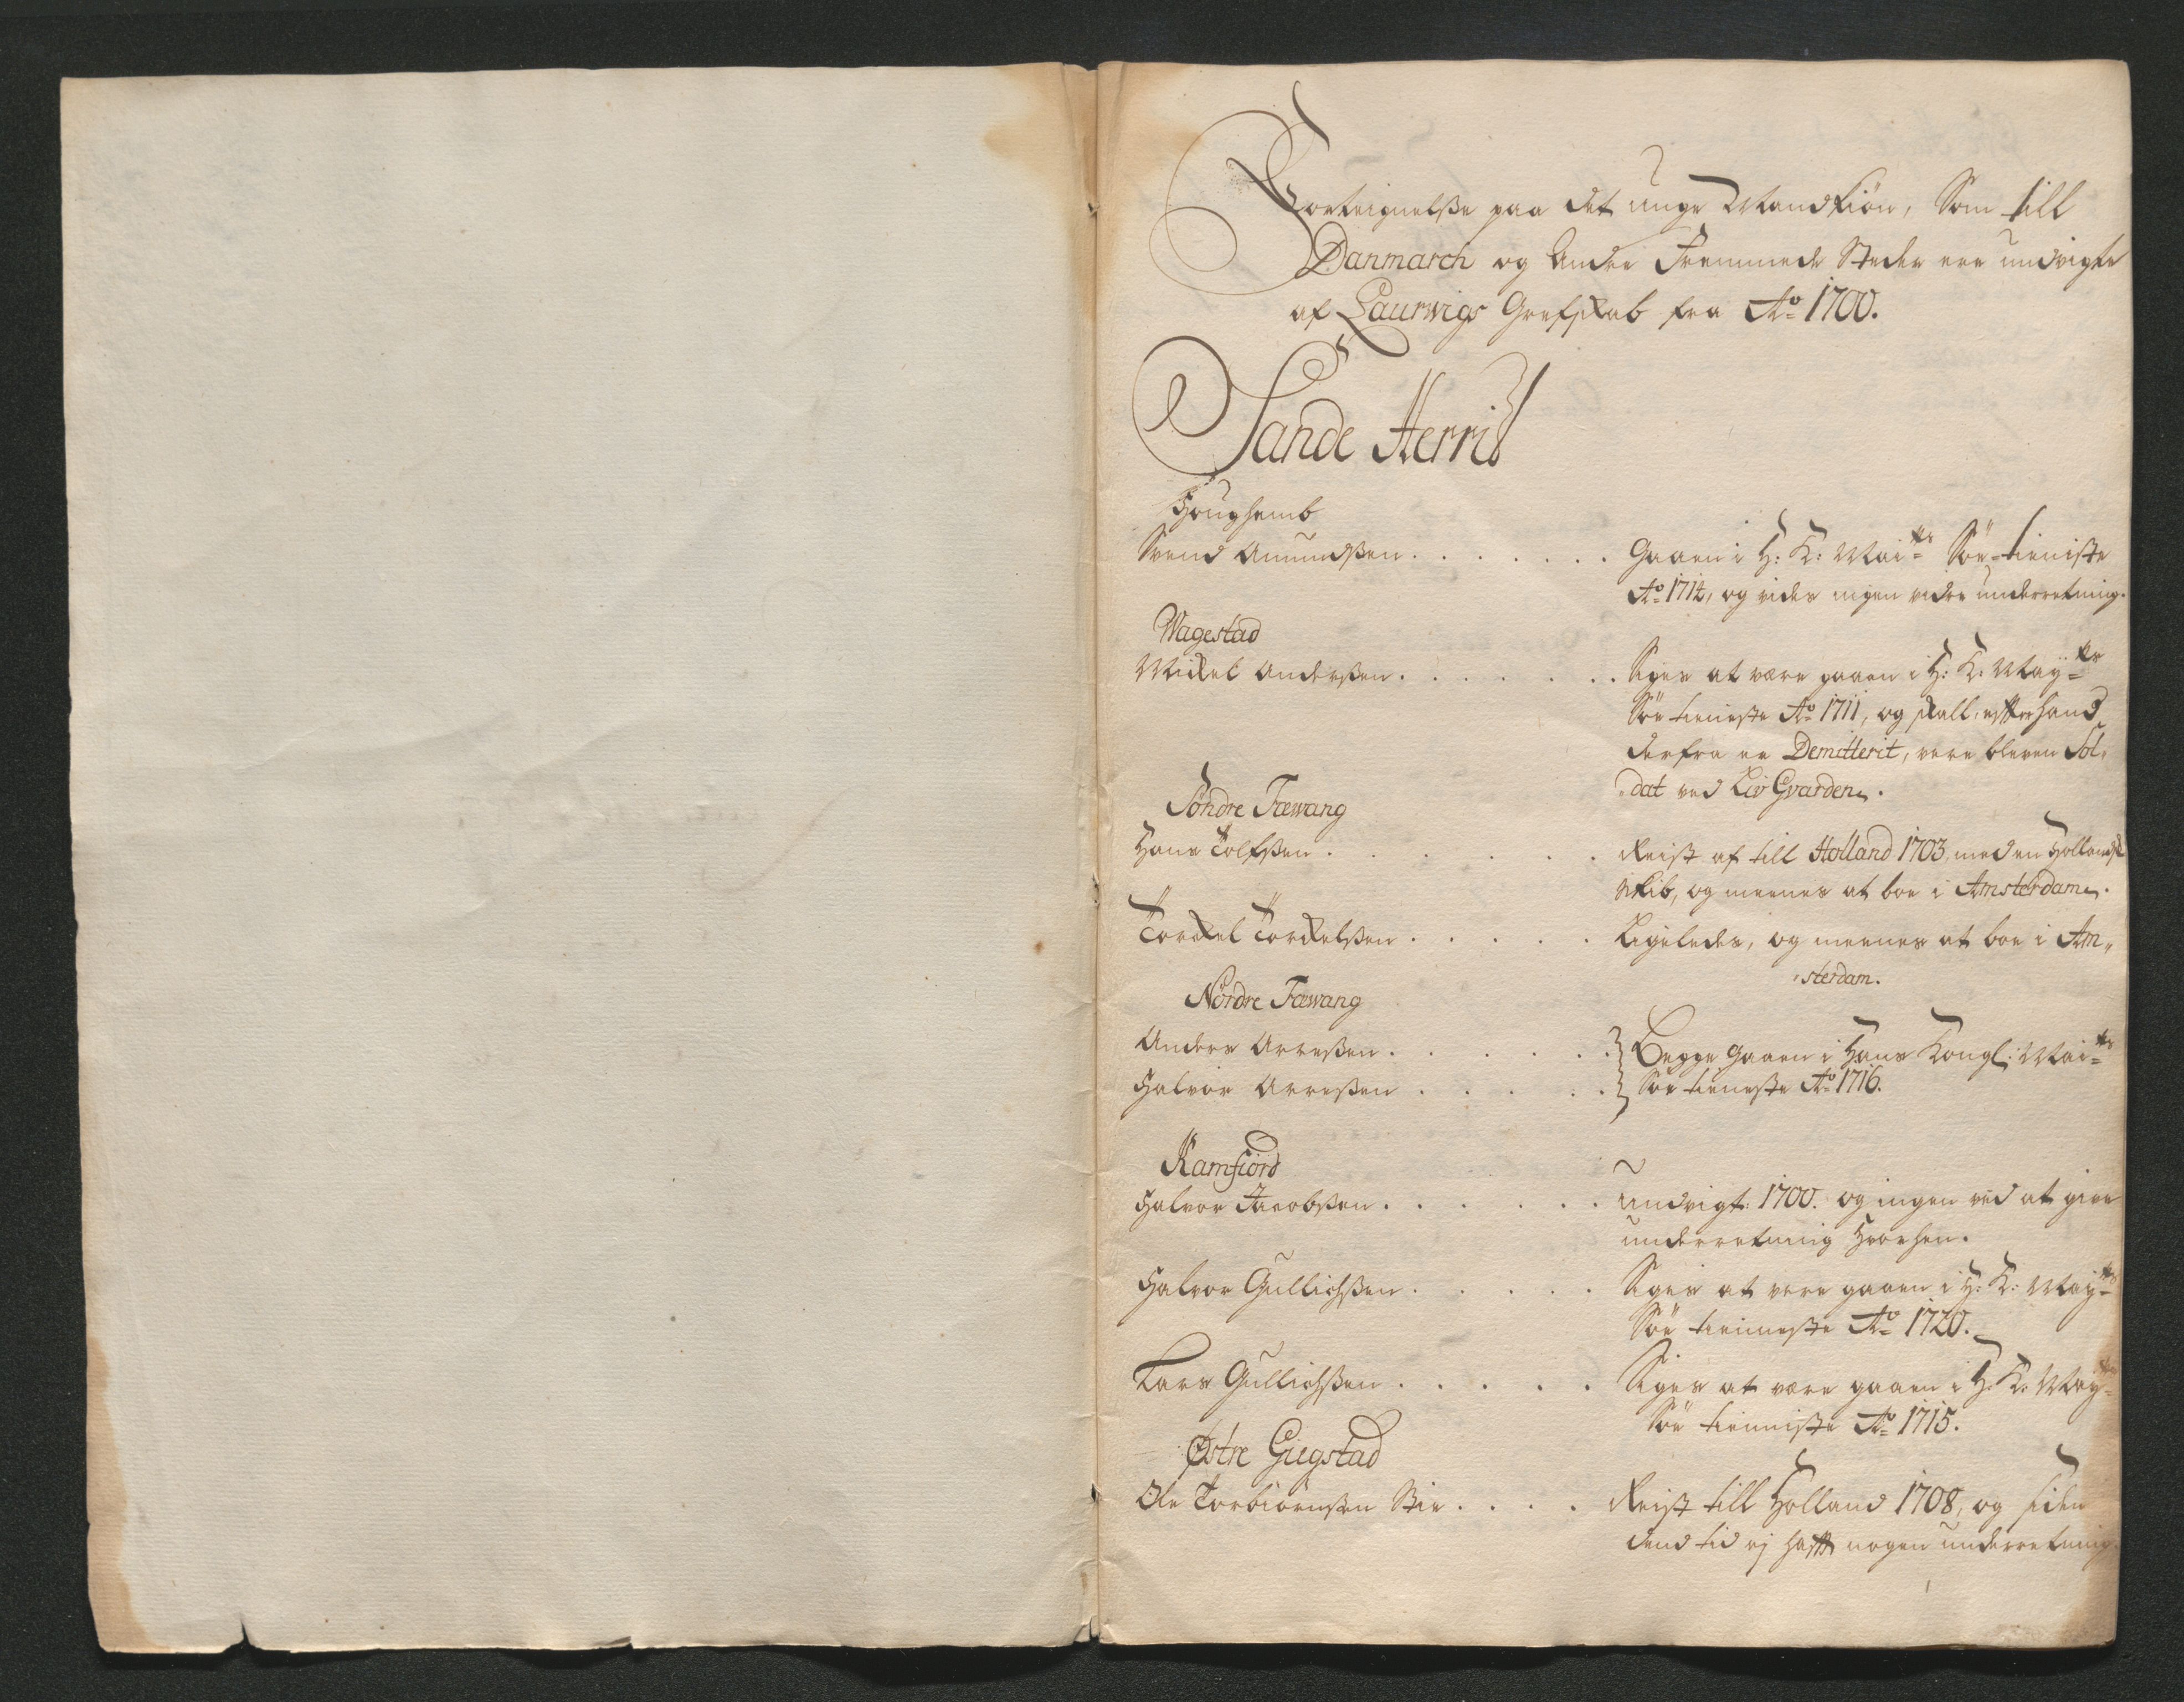 Forteignelße paa det unge Mandkiön, Som till
Danmarch og Andre Fremmede Steder ere undvigte
af Laurwigs Grefskab fra Ao 1700.
Sande Herrid
Houghemb
Svend Amundßen . . . . . . . Gaaen i H: K: Mai:ts Söe-tieniste
Ao 1714, og vides ingen vidre underretning.
Wagestad
Mickel Anderßen . . . . . . . Siges at være gaaen i H: K: May:ts
Söe tieneste Ao 1711, og skall, efter hand
derfra er Demitterit, vere bleven Sol-
dat ved Liv Gvarden.
Söndre Fæwang
Hans Rolfßen . . . . . . Reist af till Holland 1703, med en Hollandsk
Skib, og meenes at boe i Amsterdam.
Torckel Torckelßen . . . . . Ligeledes, og meenes at boe i Am-
sterdam.
Nordre Fæwang
Anders Arreßen . . . . . . Begge Gaaen i Hans Kongl: Mai:ts
Halvor Arreßen . . . . . Söe tieneste Ao 1716.
Ramfiord
Halvor Jacobßen . . . . . . undvigt 1700. og ingen ved at give
underretning hvorhen.
Halvor Gullichßen . . . . . Siges at vere gaaen i H: K: May:ts
Söe tienneste Ao 1720.
Lars Gullichßen . . . . . Siges at være gaaen i H: K: May:ts
Söe tienniste Ao 1715.
Østre Giegstad
Ole Torbiörnßen Bie . . . . Reist till Holland 1708, og siden
dend tid ej hafft nogen underretning.